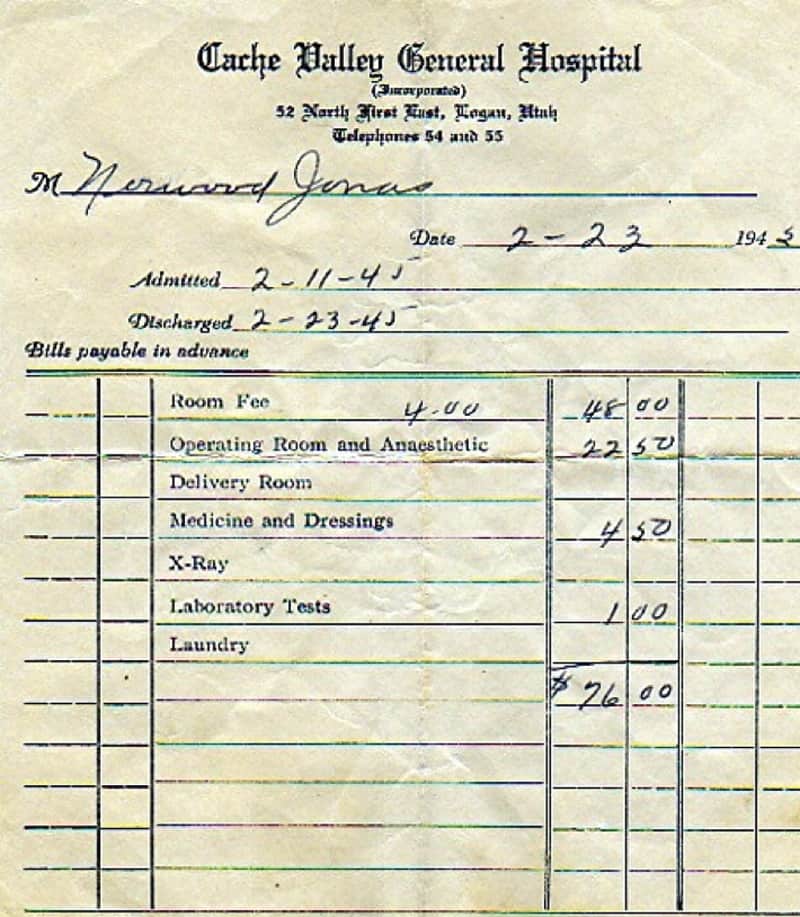 Cache Valley General Hospital
(Incorporated)
52 North First East, Logan, Utah
Telephones 54 and 55
M Norwood Jonas
Date 2-23 1945
Admitted 2-11-45
Discharged 2-23-45
Bills payable in advance
Room Fee 4.00 48 00
Operating Room and Anaesthetic 22 50
Delivery Room
Medicine and Dressings 4 50
X-Ray
Laboratory Tests 1 00
Laundry
$ 76 00